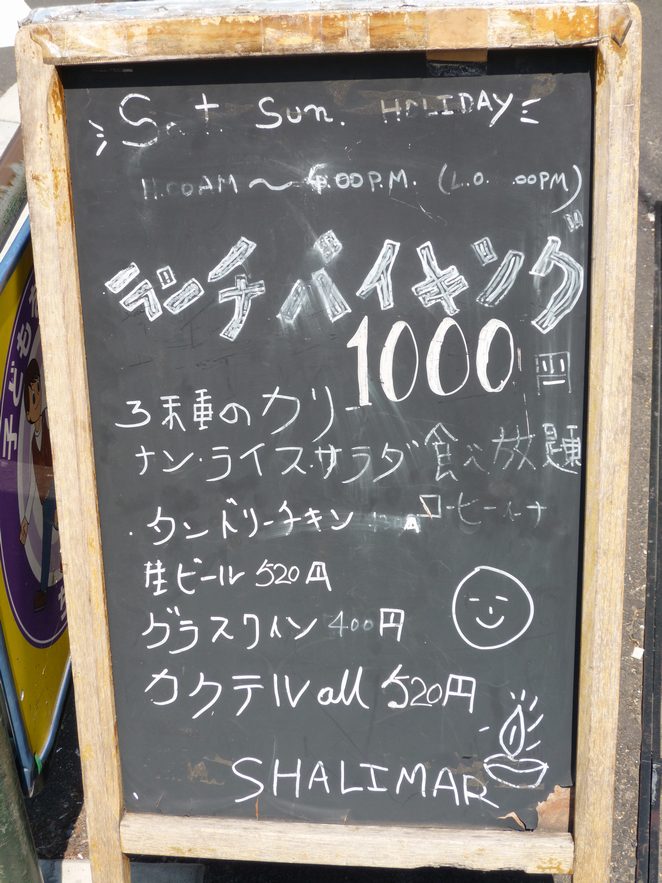 Sat. Sun. HOLIDAY
11.00AM ～ .00P.M. (L.O. .00PM)
ランチバイキング
1000円
3種のカリー
ナン・ライス・サラダ食べ放題
・タンドリーチキン
生ビール 520円
グラスワイン 400円
カクテル all 520円
SHALIMAR